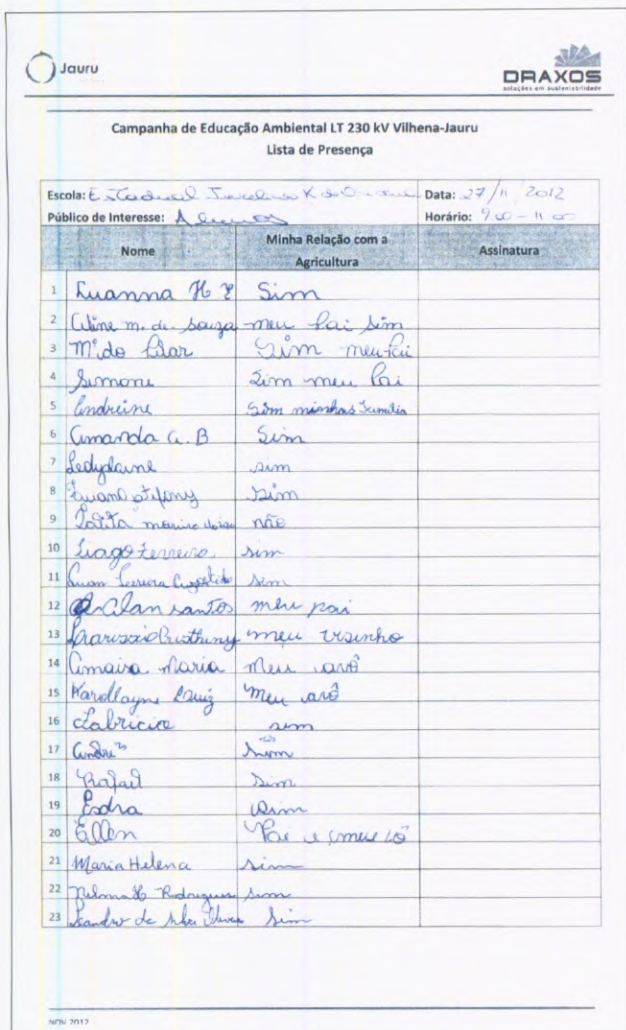 Jauru
DRAXOS
soluções em sustentabilidade
Campanha de Educação Ambiental LT 230 kV Vilhena-Jauru
Lista de Presença
Escola: Estadual K de Data: 27/11/2012
Público de Interesse: Alunos Horário: 9:00 - 11:00
Nome Minha Relação com a Agricultura Assinatura
1 Luanna H Sim
2 Aline m. de Souza meu Pai sim
3 Mª do Pilar Sim meu Pai
4 Simone Sim meu Pai
5 Andreine Sim minhas Familia
6 Amanda G. B Sim
7 Ledydaine sim
8 Luana stefany sim
9 Talita não
10 Tiago Ferreira sim
11 Luan sim
12 Alan santos meu pai
13 meu visinho
14 Amaisa Maria Meu avô
15 Karollayne Meu avô
16 Fabricia sim
17 Andre Sim
18 Rafael Sim
19 Esdra Sim
20 Ellen Pai e meu vô
21 Maria Helena sim
22 H Rodrigues sim
23 Leandro de Silva Sim
NOV 2012